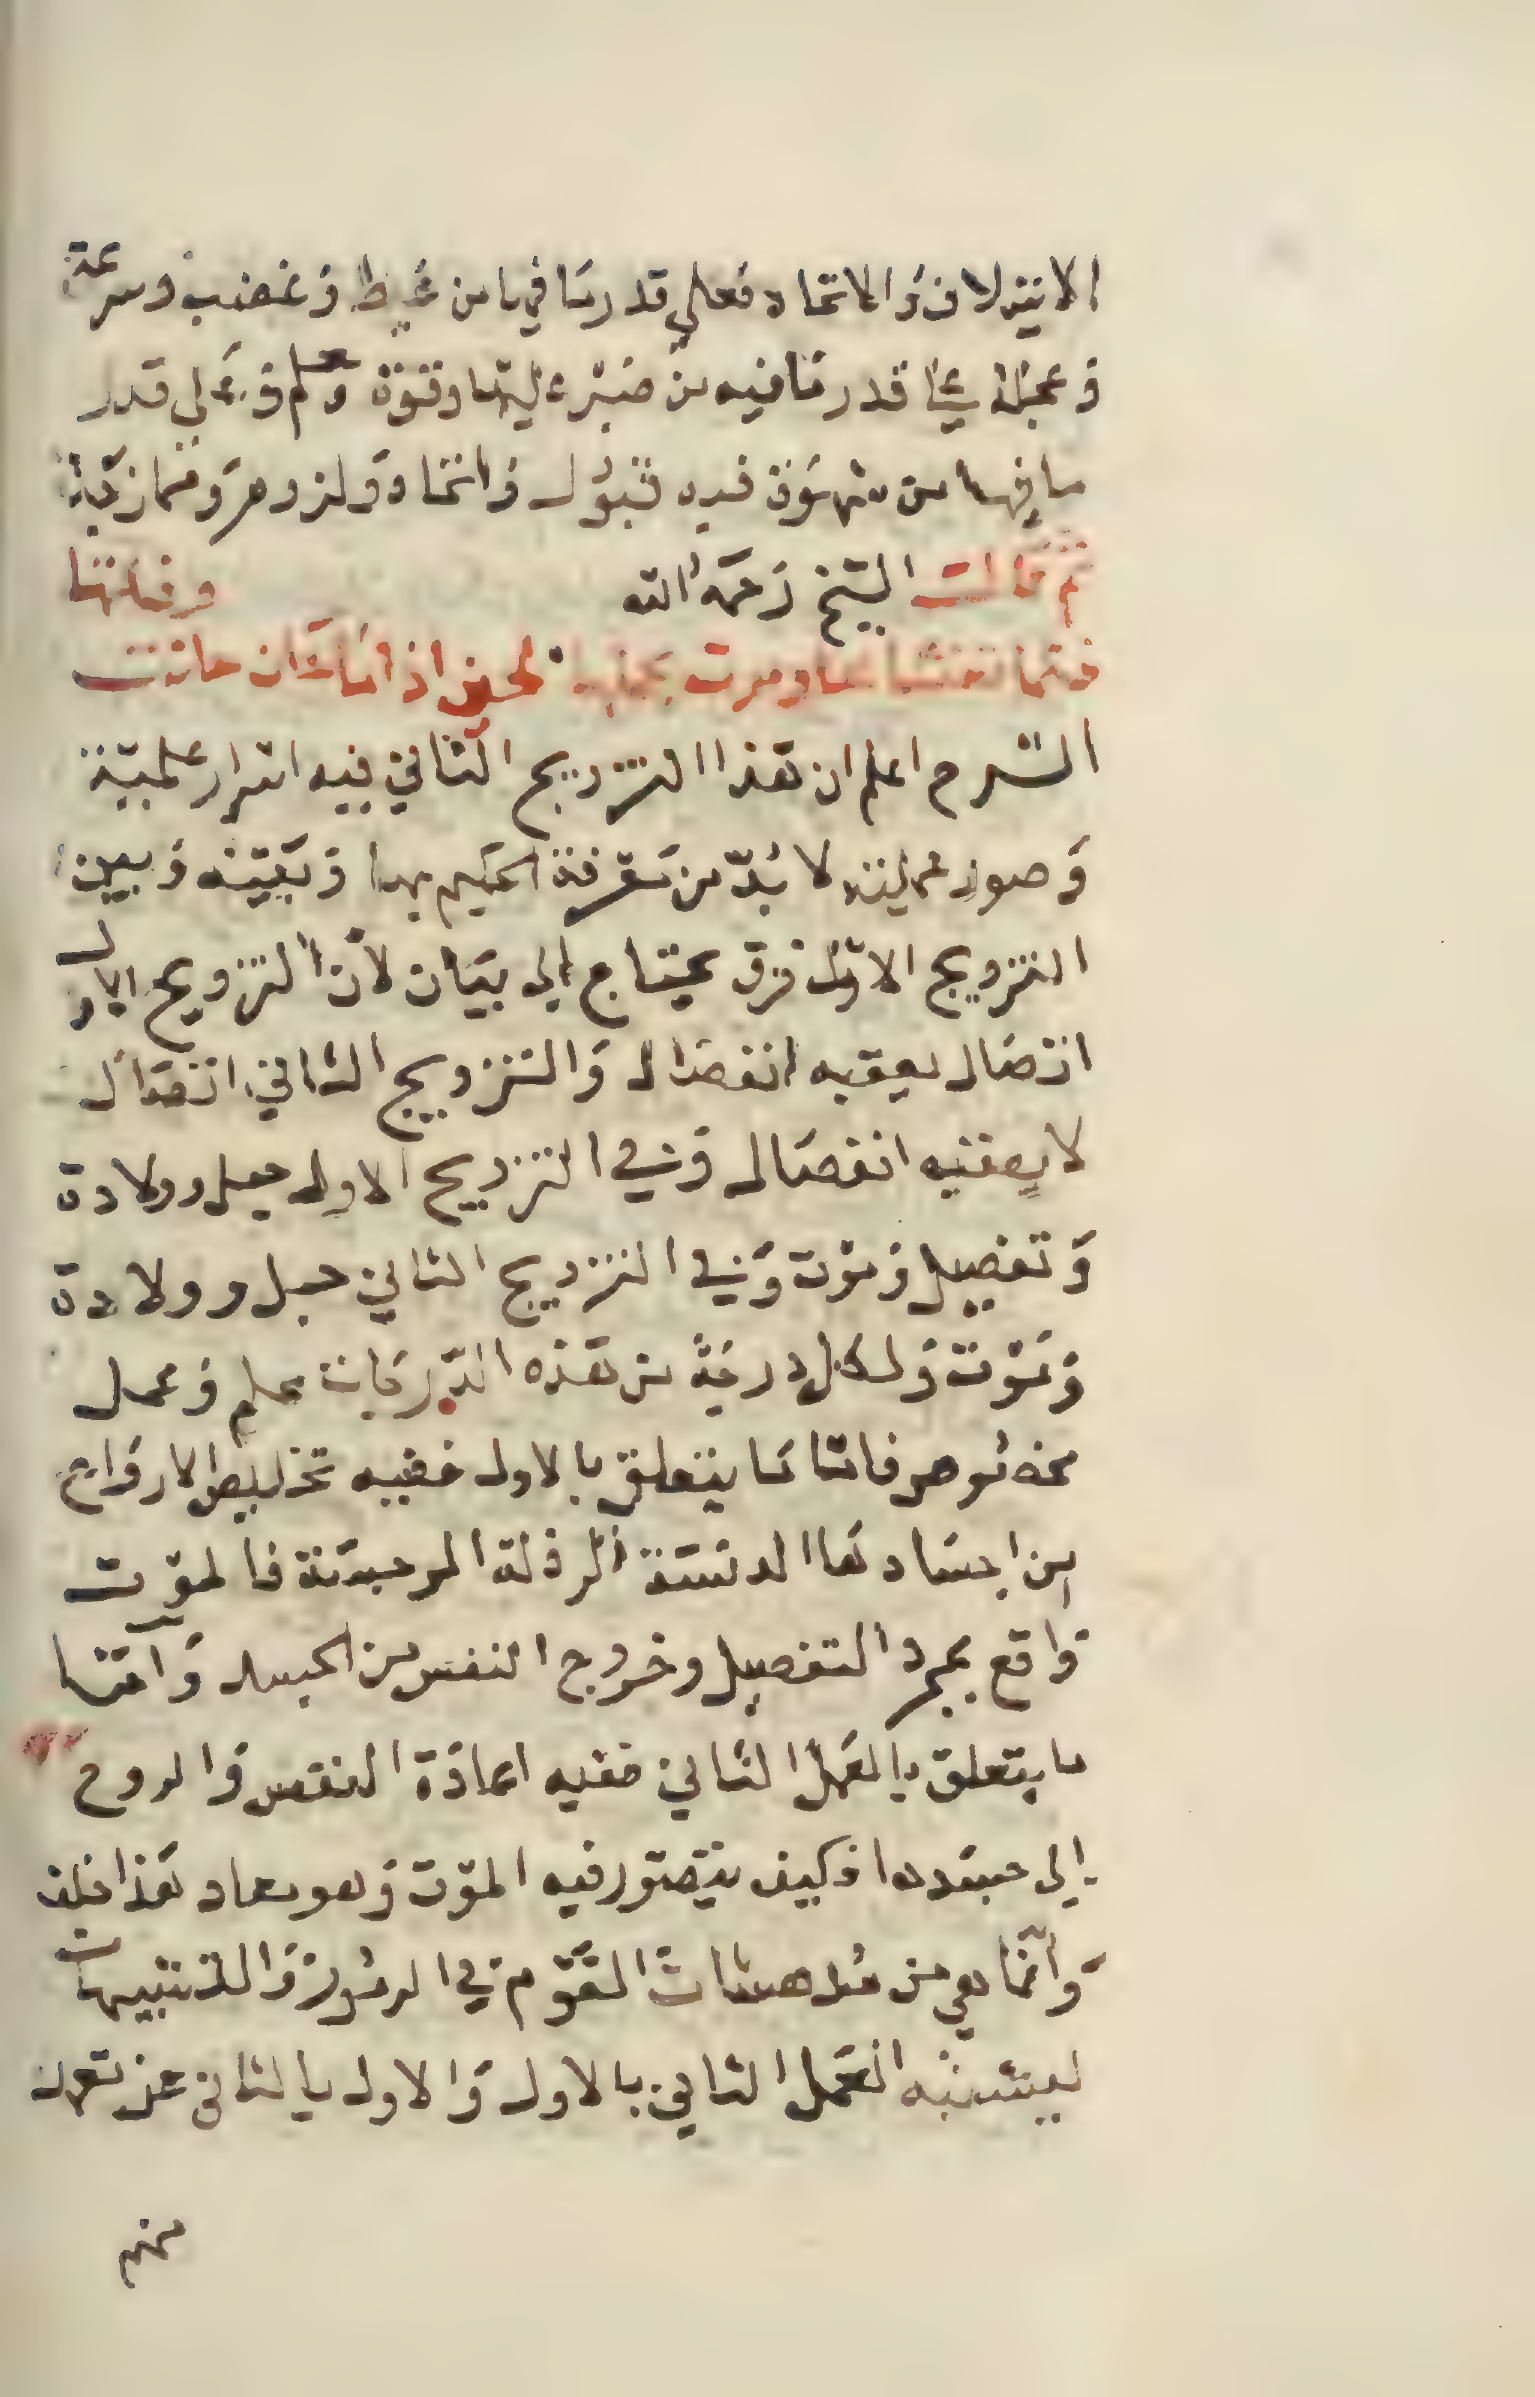 الايتلاف والاتحاد فعلي قدر ما فيها من غيظ وغضب وسرعة
وعجلة علي قدر ما فيه من صبر عليها وقوة وحلم وعلي قدر
ما فيها من شهوة فيه قبول واتحاد ولزوم وممازجة
ثم قال الشيخ رحمه الله
اذا ما كان حانت
الشرح اعلم ان هذا التزويج الثاني فيه اسرار علمية
وصور عملية لا بد من معرفة الحكيم بها وبينه وبين
التزويج الاول فرق يحتاج الي بيان لان التزويج الاول
اتصال يعقبه انفصال والتزويج الثاني اتصال
لا يعقبه انفصال وفي التزويج الاول حبل وولادة
وتفصيل وموت وفي التزويج الثاني حبل وولادة
وموت ولكل درجة من هذه الدرجات علم وعمل
مخصوص فاما ما يتعلق بالاول ففيه تخليص الارواح
من اجسادها الدنسة الرذلة فالموت
واقع بمجرد التفصيل وخروج النفس من الجسد واما
ما يتعلق بالعمل الثاني ففيه اعادة النفس والروح
الي جسدها فكيف يتصور فيه الموت وهو معاد هذا خلف
وانما هي من مدهشات القوم في الرموز والتشبيهات
ليشتبه العمل الثاني بالاول والاول بالثاني علي